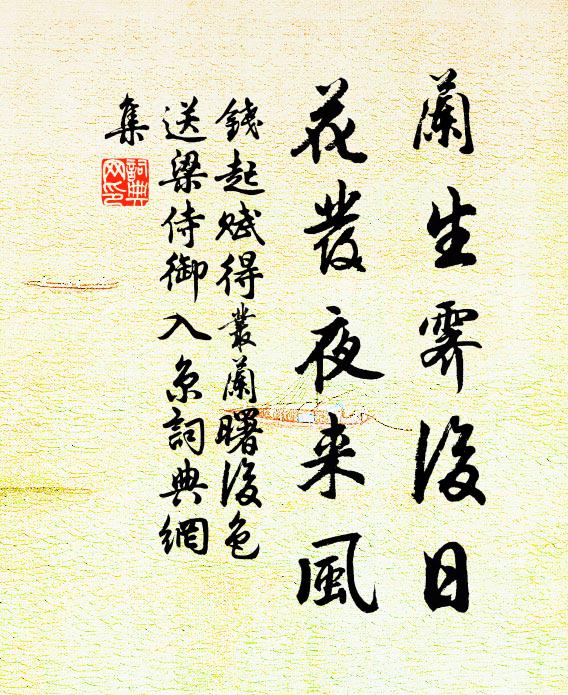 蘭生霽後日
花發夜來風
錢起賦得叢蘭曙後色
送梁侍御入京詞典網
集
詞典網印